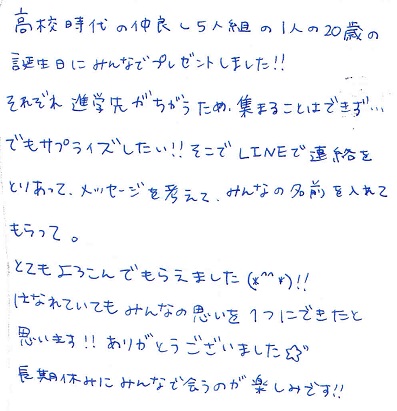 高校時代の仲良し5人組の1人の20歳の
誕生日にみんなでプレゼントしました!!
それぞれ進学先がちがうため、集まることはできず…
でもサプライズしたい!!そこでLINEで連絡を
とりあって、メッセージを考えて、みんなの名前を入れて
もらって。
とてもよろこんでもらえました(*^^*)!!
はなれていてもみんなの思いを1つにできたと
思います!!ありがとうございました☆
長期休みにみんなで会うのが楽しみです!!